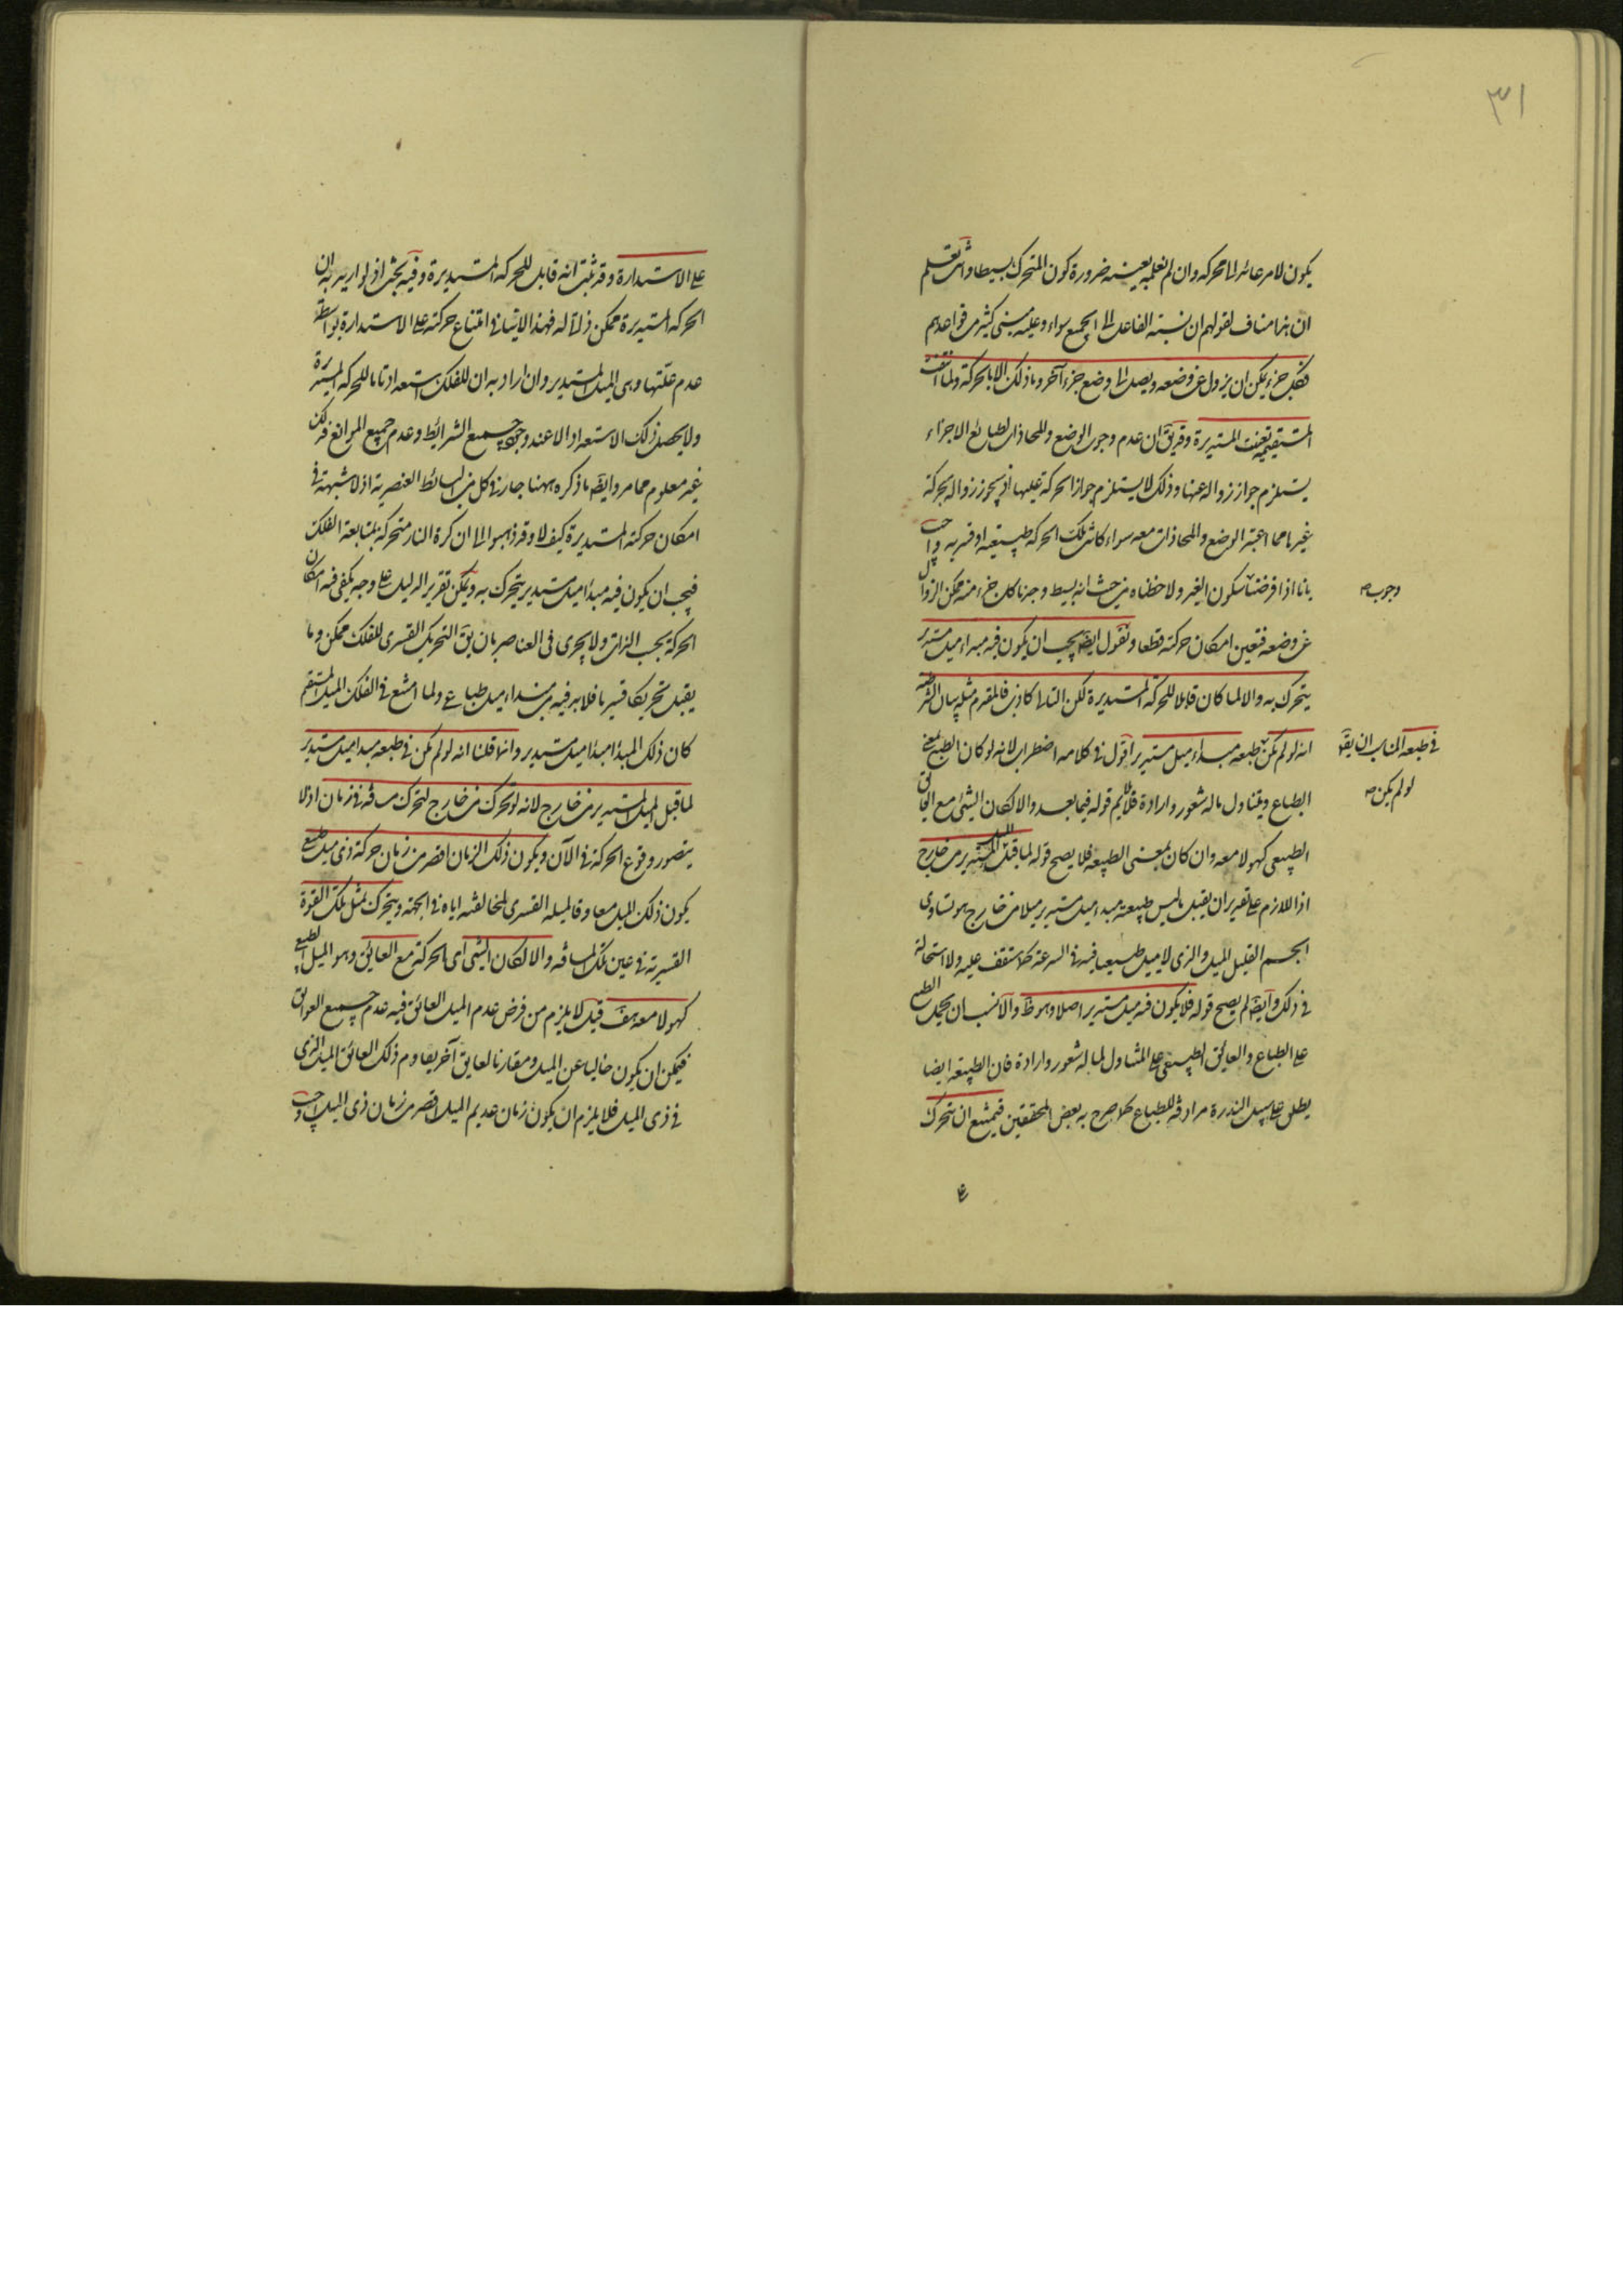 ٣١
يكون لامر عائد الى المحرك وان لم نعلمه بعينه ضرورة كون المتحرك بسيطا وانت تعلم
ان هذا مناف لقولهم ان نسبة الفاعل الى الجميع سواء وعليه مبنى كثير من قواعدهم
فكل جزء يمكن ان يزول عن وضعه ويصل الى وضع جزء آخر وما ذلك الا بالحركة ولما امتنعت
المستقيمة تعينت المستديرة وقد يق ان عدم وجوب الوضع والمحاذاة لطبائع الاجزاء
يستلزم جواز زواله عنها وذلك لا يستلزم جواز الحركة عليها اذ يجوز زواله بحركة
غيرها مما اعتبر الوضع والمحاذات معه سواء كانت تلك الحركة طبيعية او قسرية واجيب
بانا اذا فرضنا سكون الغير ولاحظناه من حيث انه بسيط وجدنا كل جزء منه ممكن الزوال
وجوب صح
عن وضعه فتعين امكان حركته قطعا ونقول ايضا يجب ان يكون فيه مبدء ميل مستدير
يتحرك به والا لما كان قابلا للحركة المستديرة لكن التالى كاذب فالمقدم مثله بيان الشرطية
انه لو لم يكن فى طبعه مبداء ميل مستدير اقول فى كلامه اضطراب لانه لو كان الطبع بمعنى
فى طبعه المناسب ان يقو
لو لم يكن صح
الطباع ويتناول ماله شعور وارادة فلا يلايم قوله فيما بعد والا لكان الشئ مع العائق
الطبيعى كهو لا معه وان كان بمعنى الطبيعة فلا يصح قوله لما قبل الميل المستدير من خارج
اذ اللازم على تقدير ان يقبل ما ليس طبيعته مبدء ميل مستدير ميلا من خارج هو تساوى
الجسم القليل الميل والذى لا ميل طبيعيا فيه فى السرعة كما ستقف عليه ولا استحالة
فى ذلك وايضا لم يصح قوله فلا يكون فيه ميل مستدير اصلا وهو ظ والانسب ان يحمل الطبع
على الطباع والعائق الطبيعى على المتناول لما له شعور وارادة فان الطبيعة ايضا
يطلق على سبيل الندرة مرادفة للطباع كما صرح به بعض المحققين فيمتنع ان يتحرك
على الاستدارة وقد ثبت انه قابل للحركة المستديرة وفيه بحث اذ لو اريد به ان
الحركة المستديرة ممكن ذاتا له فهذا لا ينافى امتناع حركته على الاستدارة بواسطة
عدم علتها وهى الميل المستدير وان اراد به ان للفلك استعدادا تاما للحركة المستديرة
ولا يحصل ذلك الاستعداد الا عند وجود جميع الشرائط وعدم جميع الموانع فذلك
غير معلوم مما مر وايضا ما ذكره ههنا جار فى كل من البسائط العنصرية اذ لا شبهة فى
امكان حركته المستديرة كيف لا وقد ذهبوا الى ان كرة النار متحركة بمتابعة الفلك
فيجب ان يكون فيه مبدأ ميل مستدير يتحرك به ويمكن تقرير الدليل على وجه يكفى فيه امكان
الحركة بحسب الذات ولا يجرى فى العناصر بان يق التحريك القسرى للفلك ممكن وما
يقبل تحريكا قسريا فلا بد فيه من مبداء ميل طباعى ولما امتنع فى الفلك الميل المستقيم
كان ذلك المبدأ مبدأ ميل مستدير وانما قلنا انه لو لم يكن فى طبعه مبدا ميل مستدير
لما قبل الميل المستدير من خارج لانه لو تحرك من خارج لتحرك مسافة فى زمان اذ لا
يتصور وقوع الحركة فى الآن ويكون ذلك الزمان اقصر من زمان حركة ذى ميل طبيعى
يكون ذلك الميل معاوقا لميله القسرى لمخالفته اياه فى الجهة ويتحرك بمثل تلك القوة
القسرية فى عين تلك المسافة والا لكان الشئ اى الحركة مع العائق وهو الميل الطبيعى
كهو لا معه هف قيل لا يلزم من فرض عدم الميل العائق فيه عدم جميع العوائق
فيمكن ان يكون خاليا عن الميل ومقارنا لعايق آخر يقاوم ذلك العائق الميل الذى
فى ذى الميل فلا يلزم ان يكون زمان عديم الميل اقصر من زمان ذى الميل واجيب